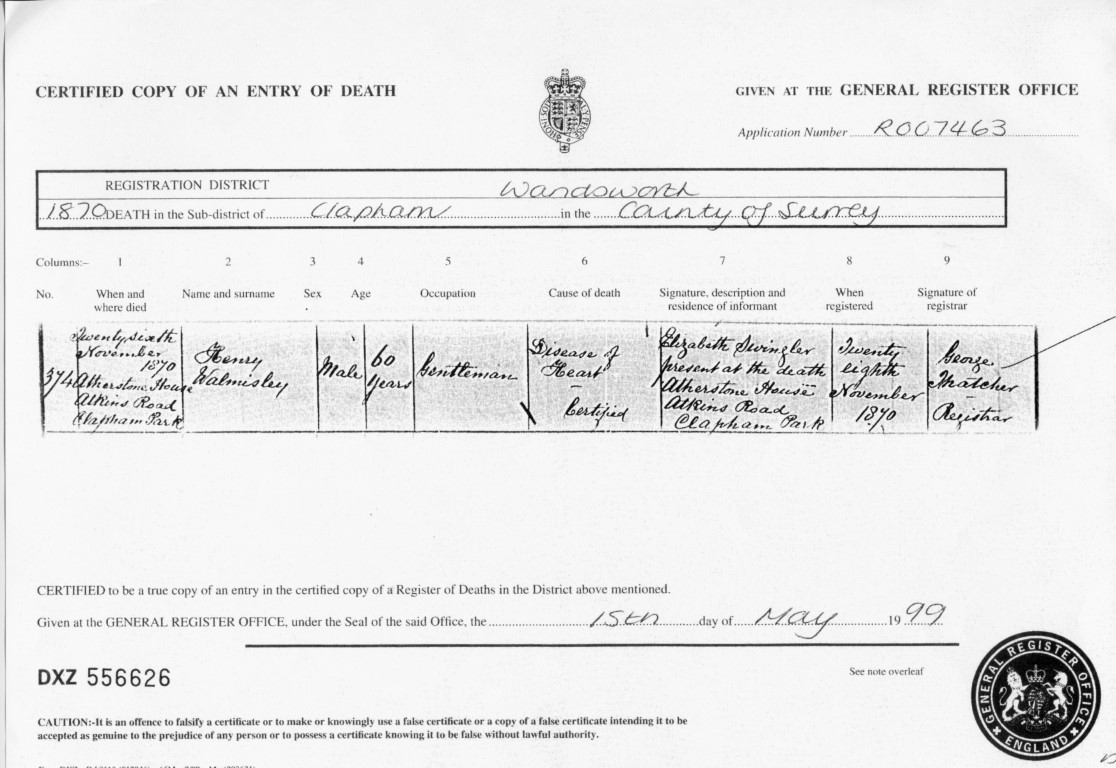 CERTIFIED COPY OF AN ENTRY OF DEATH
GIVEN AT THE GENERAL REGISTER OFFICE
Application Number R007463
REGISTRATION DISTRICT Wandsworth
1870 DEATH in the Sub-district of Clapham in the County of Surrey
Columns:– 1 2 3 4 5 6 7 8 9
No. When and Name and surname Sex Age Occupation Cause of death Signature, description and When Signature of
where died residence of informant registered registrar
374
Twenty sixth
November
1870
Atherstone House
Atkins Road
Clapham Park
Henry
Walmisley
Male
60
years
Gentleman
Disease of
Heart
–
Certified
Elizabeth Swingler
present at the death
Atherstone House
Atkins Road
Clapham Park
Twenty
eighth
November
1870
George
Thatcher
–
Registrar
CERTIFIED to be a true copy of an entry in the certified copy of a Register of Deaths in the District above mentioned.
Given at the GENERAL REGISTER OFFICE, under the Seal of the said Office, the 15th day of May 1999
DXZ 556626
See note overleaf
CAUTION:-It is an offence to falsify a certificate or to make or knowingly use a false certificate or a copy of a false certificate intending it to be
accepted as genuine to the prejudice of any person or to possess a certificate knowing it to be false without lawful authority.
GENERAL REGISTER OFFICE
ENGLAND